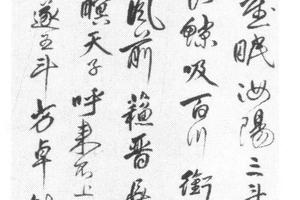 底眠汝陽三斗
鯨吸百川銜
風前蘇晉長
瞑天子呼来不上
遂五斗方卓